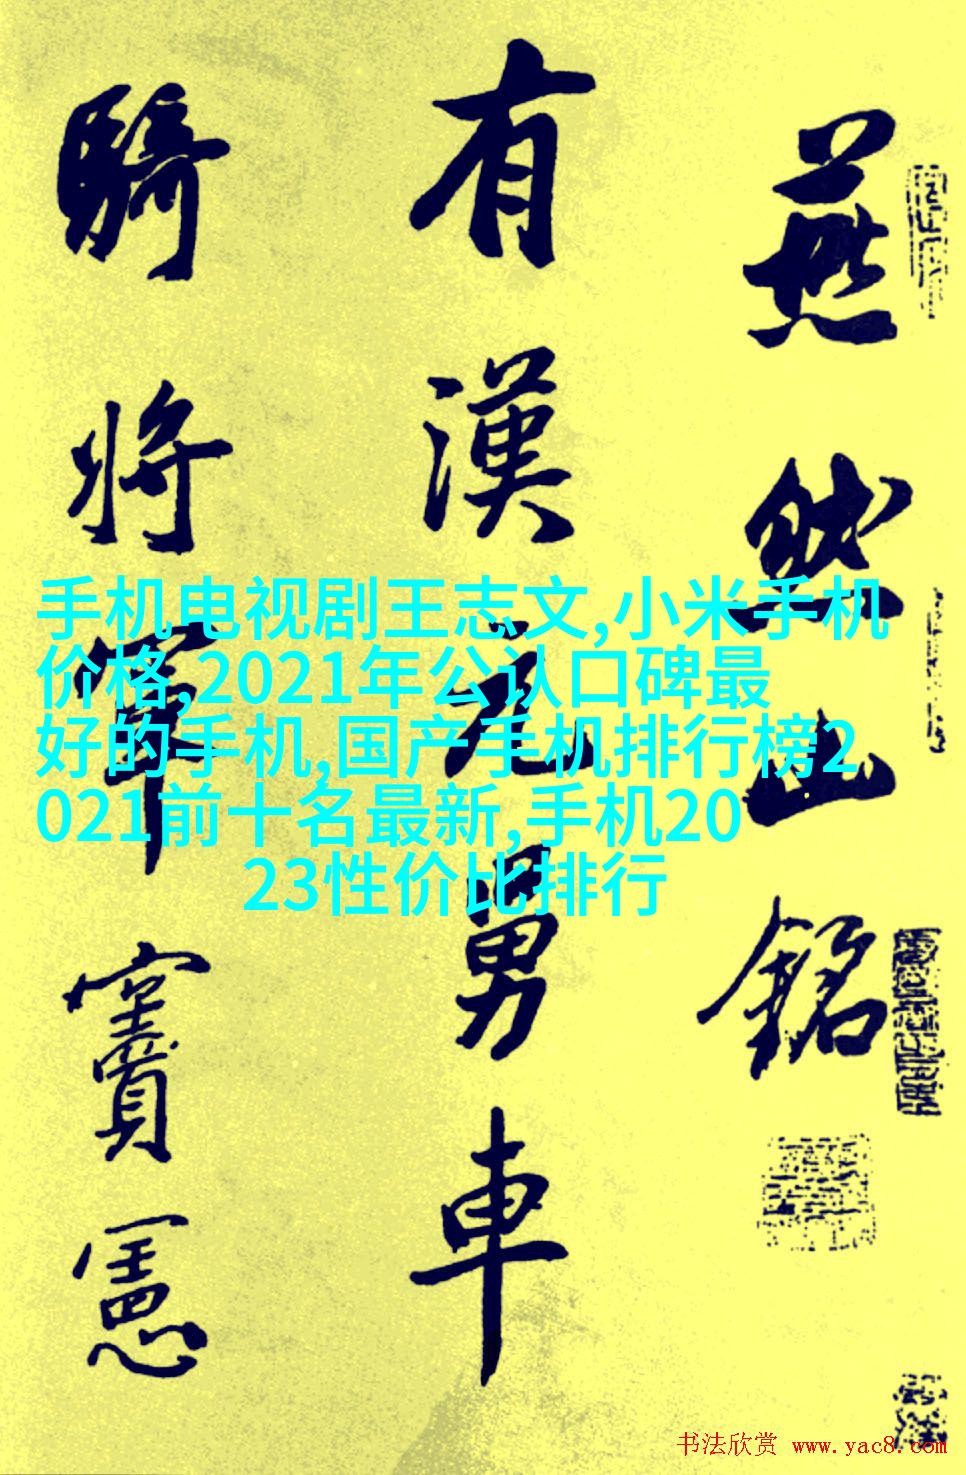 燕然山銘
有漢元舅車
騎將軍竇憲
手机电视剧王志文,小米手机
价格,2021年公认口碑最
好的手机,国产手机排行榜2
021前十名最新,手机20
23性价比排行
书法欣赏 www.yac8.com